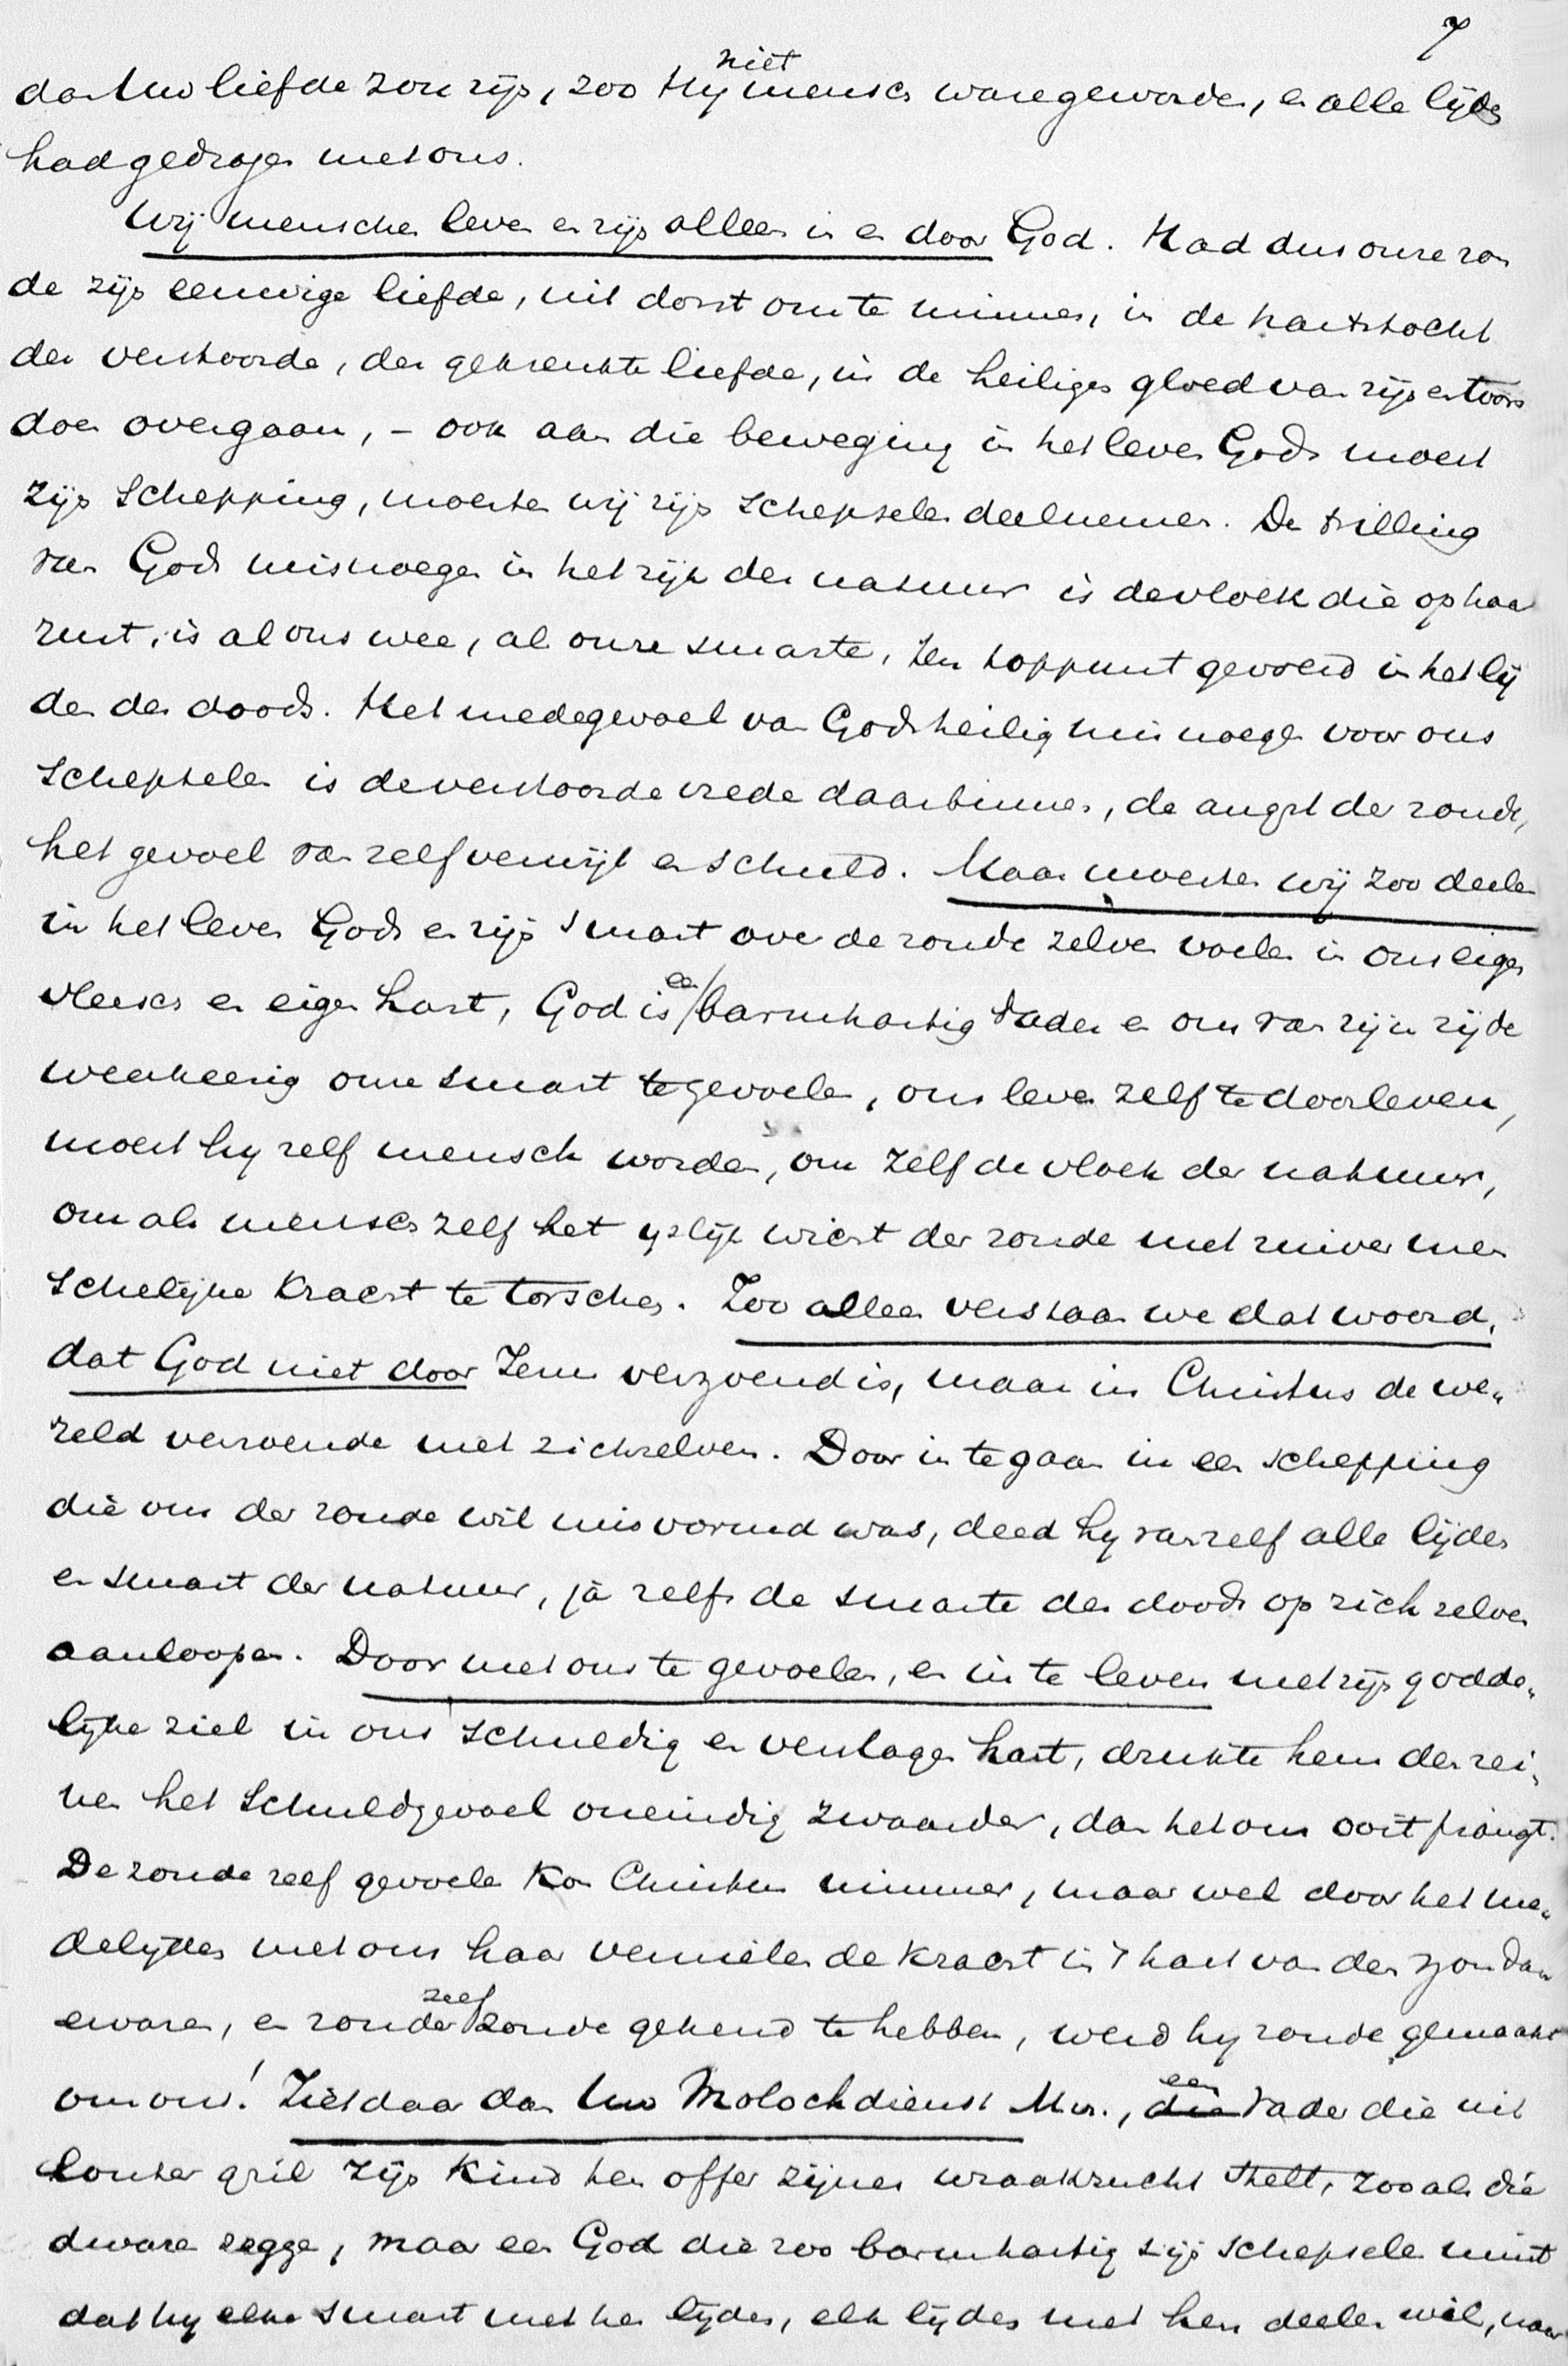 7
niet
dan Uw liefde zou zijn, zoo Hy mensch ware geworden, en alle lijden
had gedragen met ons.
Wij menschen leven en zijn alleen in en door God. Had dus onze zon
de zijn eeuwige liefde, uit dorst om te minnen, in de hartstocht
der verstoorde, der gekrenkte liefde, in de heiligen gloed van zijn toorn
doen overgaan, – ook aan die beweging in het leven Gods moest
zijn schepping, moesten wij zijn schepselen deelnemen. De trilling
van Gods misnoegen in het rijk der natuur is de vloek die op haar
rust, is al ons wee, al onze smarte, ten toppunt gevoerd in het lij
den des doods. Het medegevoel van Gods heilig misnoegen voor ons
schepselen is de verstoorde vrede daarbinnen, de angst der zonde,
het gevoel van zelfverwijt en schuld. Maar moesten wij zoo deelen
in het leven Gods en zijn smart over de zonde zelven voelen in ons eigen
vleesch en eigen hart, God is een barmhartig Vader en om van zijn zijde
weerkeerig onze smart te gevoelen, ons leven zelf te doorleven,
moest hy zelf mensch worden, om zelf de vloek der natuur,
om als mensch zelf het yslijk wicht der zonde met zuiver men
schelijke kracht te torschen. Zoo alleen verstaan we dat woord,
dat God niet door Jezus verzoend is, maar in Christus de we„
reld verzoende met zichzelven. Door in te gaan in een schepping
die om der zonde wil misvormd was, deed hy vanzelf alle lijden
en smart der natuur, ja zelfs de smarte des doods op zich zelven
aanloopen. Door met ons te gevoelen, en in te leven met zijn godde„
lijke ziel in ons schuldig en verslagen hart, drukte hem den rei„
nen het schuldgevoel oneindig zwaarder, dan het ons ooit prangt.
De zonde zelf gevoelen kon Christus nimmer, maar wel door het me„
delijden met ons haar vernielende kracht in 't hart van den zondaar
ervaren, en zonder zelf zonde gekend te hebben, werd hy zonde gemaakt
om ons! Ziet daar dan Uw Molochdienst M.v., een Vader die uit
louter gril zijn kind ten offer zijner wraakzucht stelt, zooals die
dwaze zegge, maar een God die zoo barmhartig zijn schepselen mint
dat hy elke smart met hen lijden, elk lijden met hen deelen wil, maar